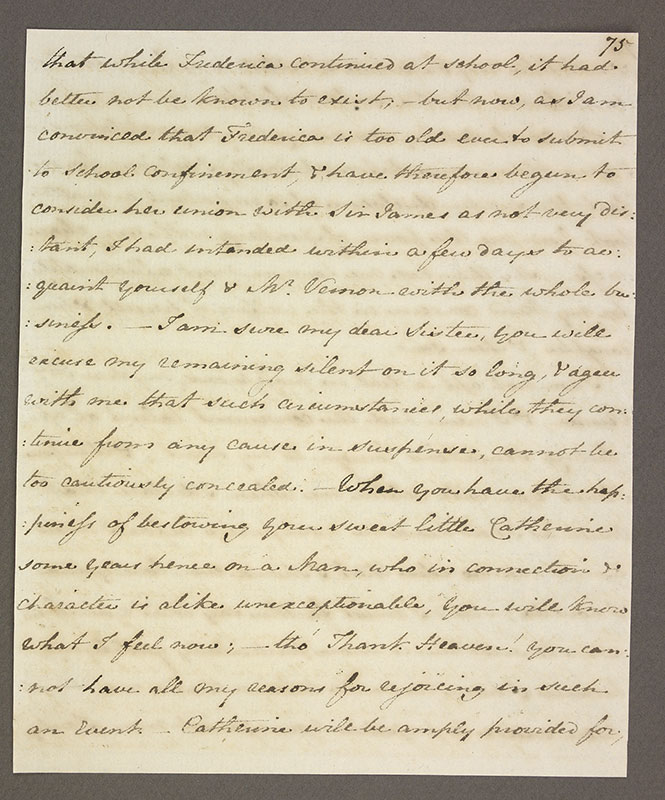 75
that while Frederica continued at school, it had
better not be known to exist; – but now, as I am
convinced that Frederica is too old ever to submit
to School confinement, & have therefore begun to
consider her union with Sir James as not very dis:
:tant, I had intended within a few days to ac:
:quaint yourself & Mr. Vernon with the whole bu:
:siness. – I am sure my dear Sister, you will
excuse my remaining silent on it so long, & agree
with me that such circumstances, while they con:
:tinue from any cause in suspense, cannot be
too cautiously concealed. – When you have the hap:
:piness of bestowing your sweet little Catherine
some years hence on a Man, who in connection &
character is alike unexceptionable, you will know
what I feel now; – tho' Thank Heaven! you can:
:not have all my reasons for rejoicing in such
an Event. – Catherine will be amply provided for,